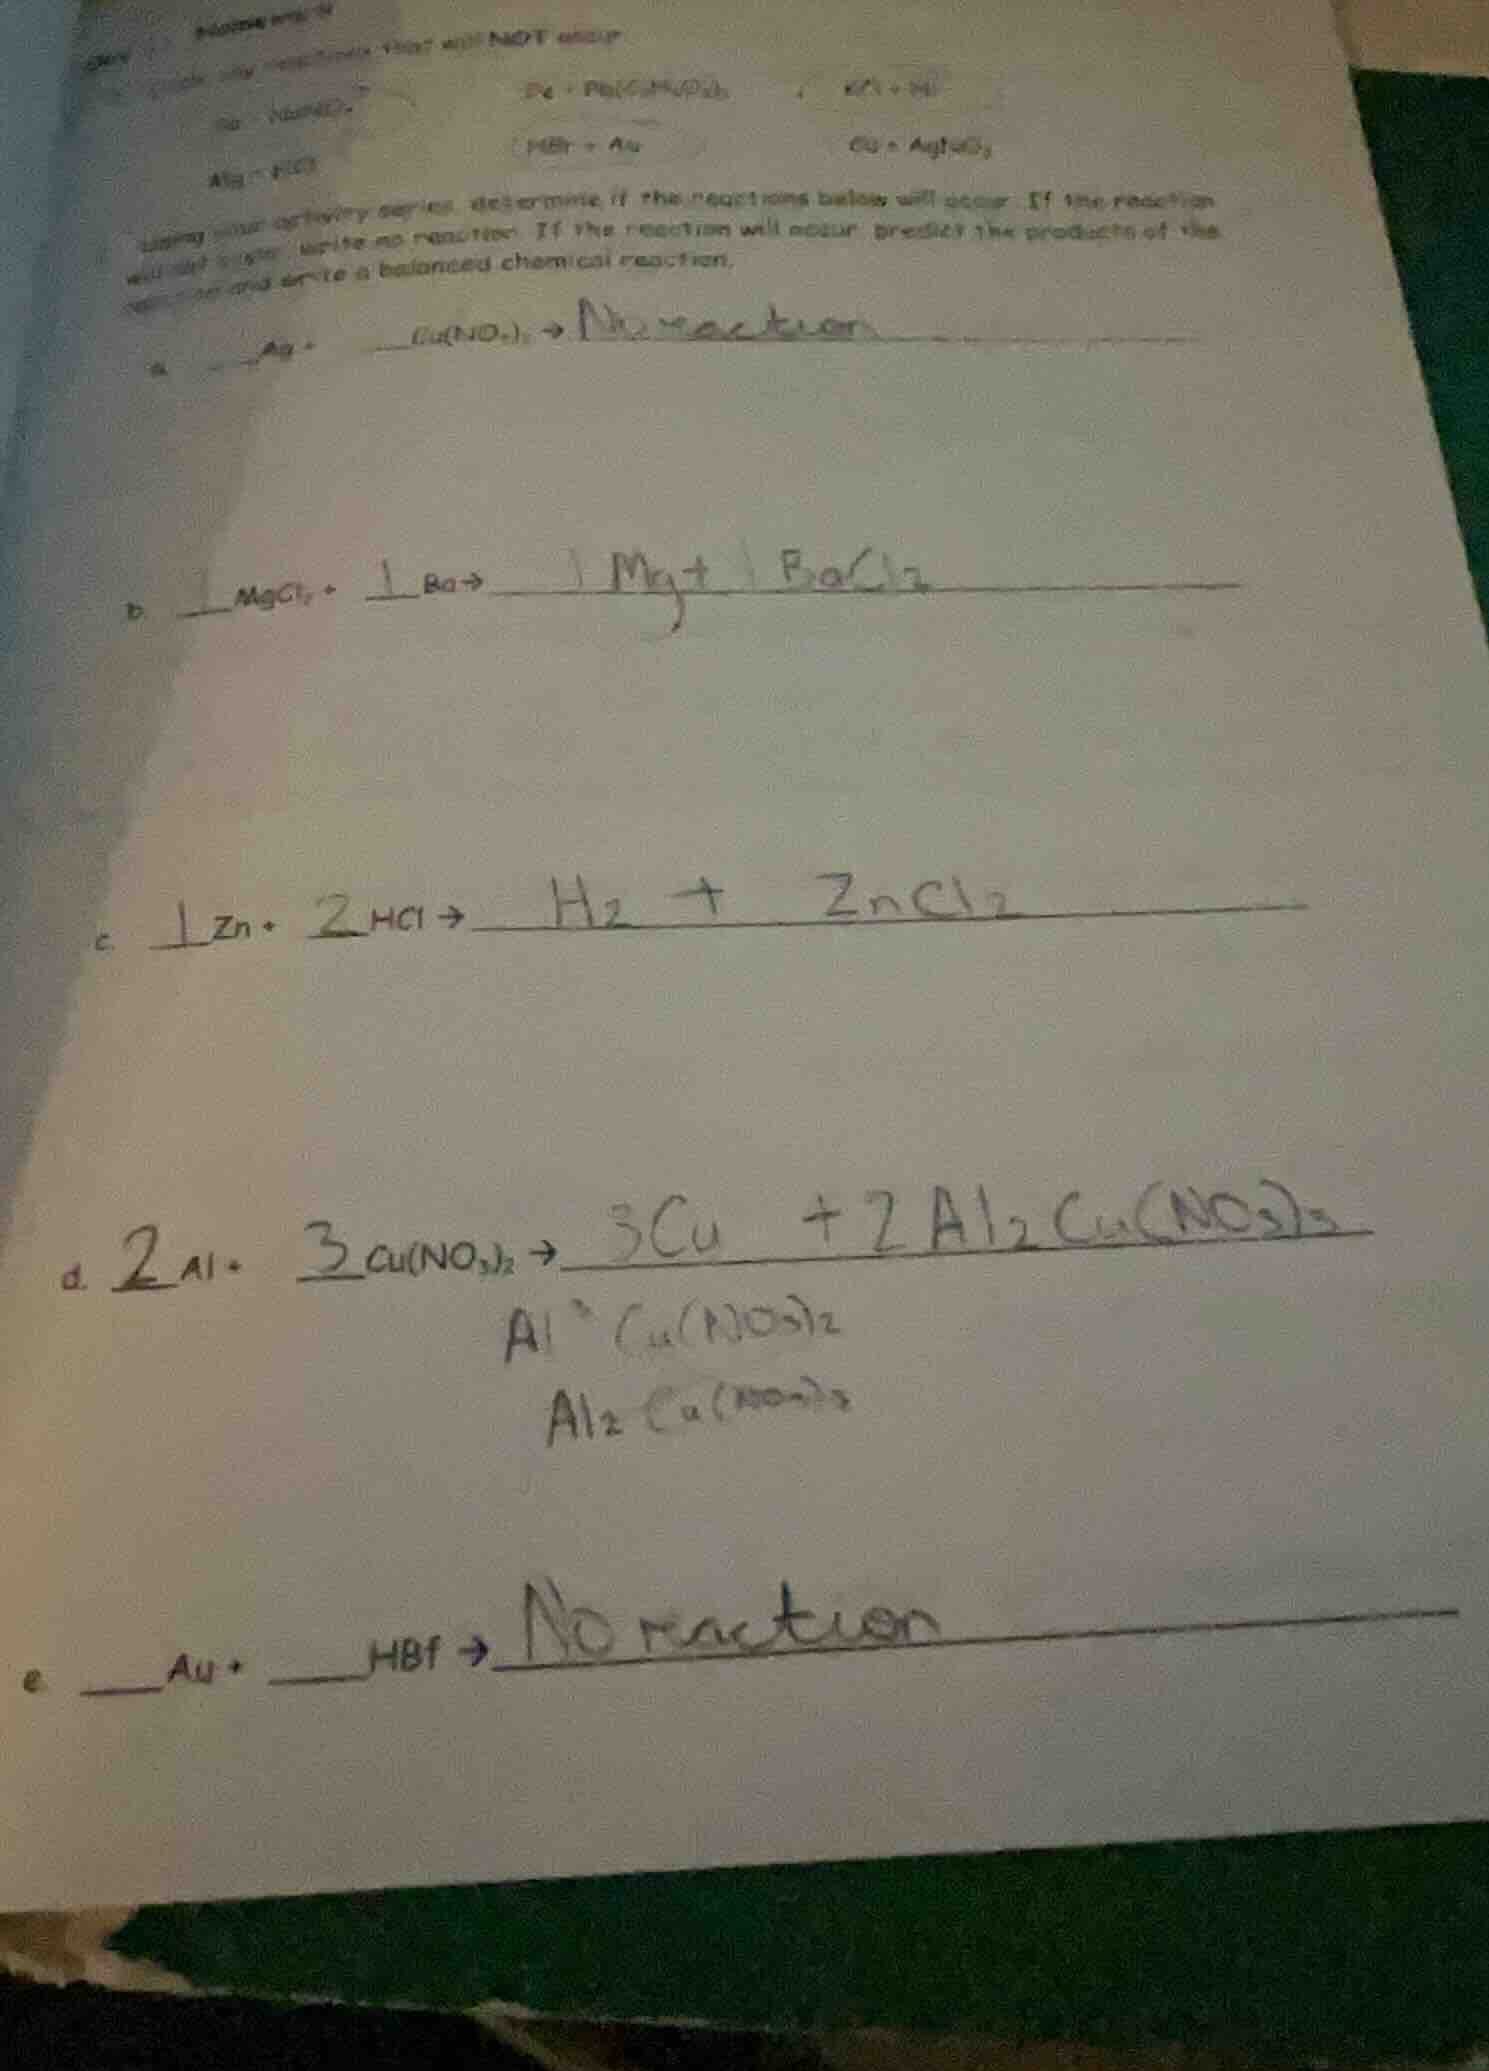 reactions that will NOT occur
HBr + Au
Cu + AgNO₃
Mg + HCl
Using your activity series, determine if the reactions below will occur. If the reaction
will not occur, write no reaction. If the reaction will occur, predict the products of the
reaction and write a balanced chemical reaction.
a. ___Ag + ___Cu(NO₃)₂ → No reaction
b. 1 MgCl₂ + 1 Ba → 1 Mg + 1 BaCl₂
c. 1 Zn + 2 HCl → H₂ + ZnCl₂
d. 2 Al + 3 Cu(NO₃)₂ → 3Cu + 2 Al₂Cu(NO₃)₃
Al³ Cu(NO₃)₂
Al₂ Cu(NO₃)₃
e. ___Au + ___HBr → No reaction